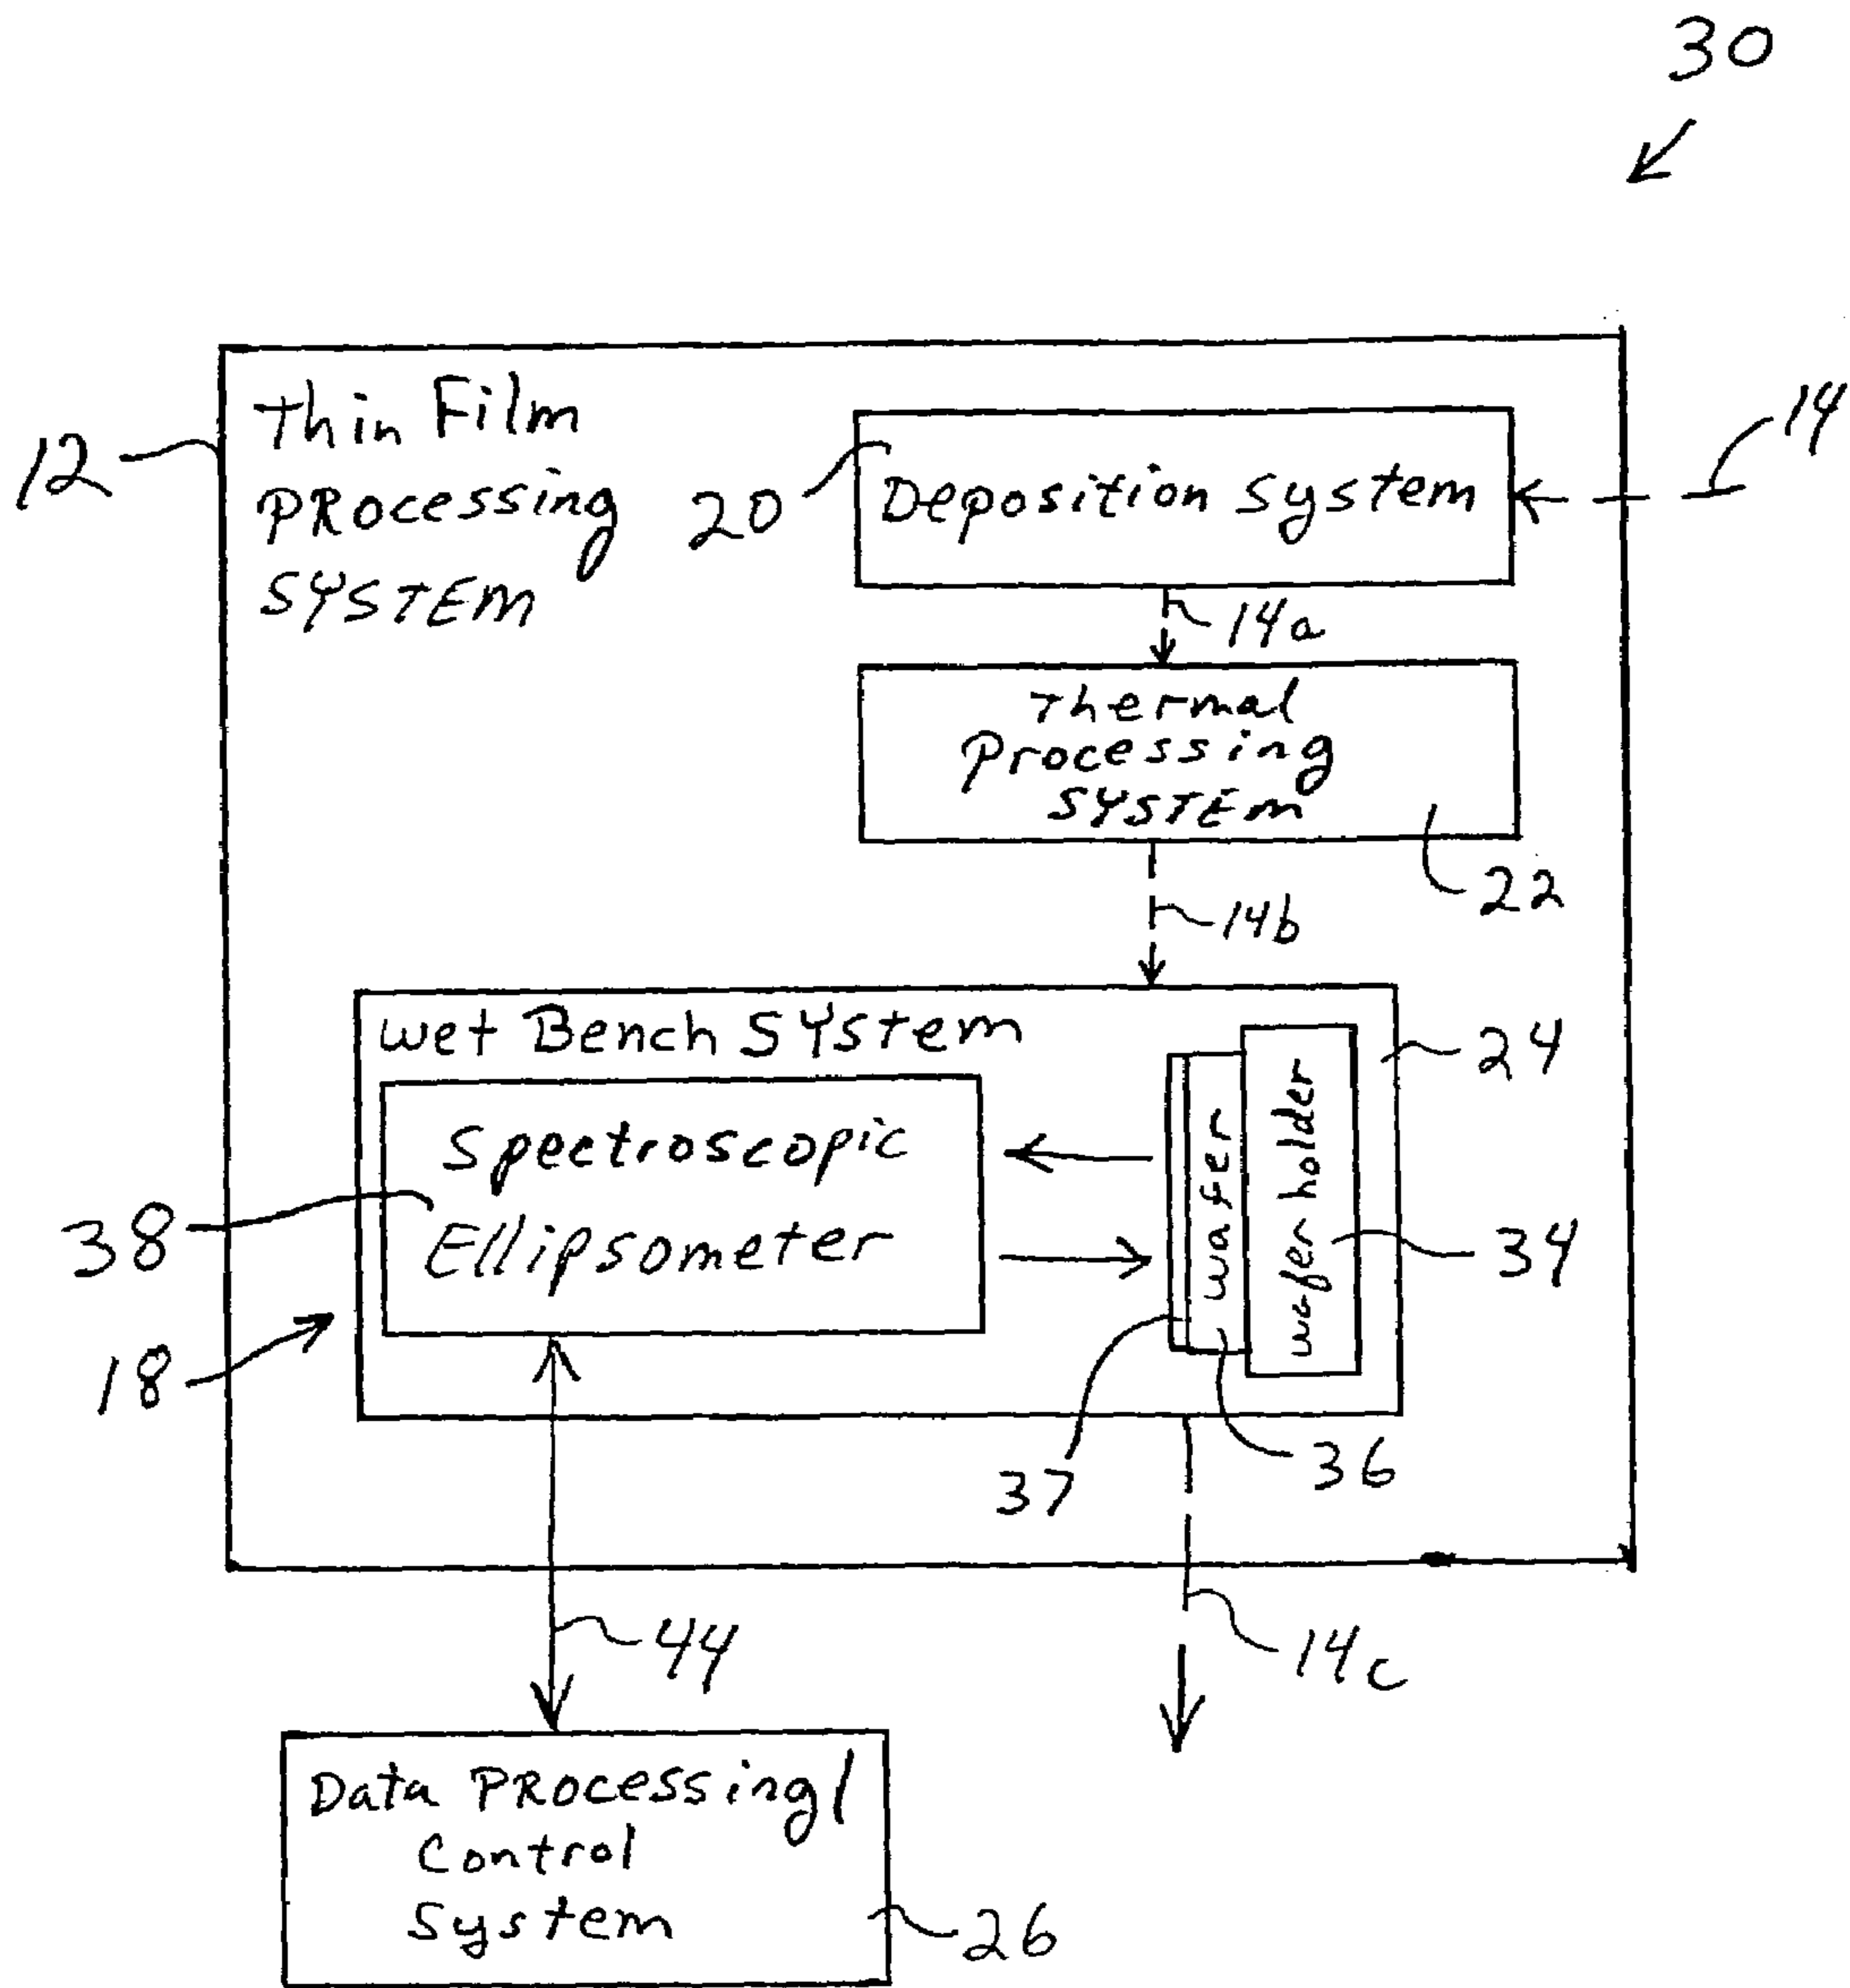 30
Thin Film
PROcessing
SYSTEM
12
14
20
Deposition System
14a
Thermal
Processing
SYSTEM
22
14b
wet Bench SYstem
24
Spectroscopic
Ellipsometer
wafer
wafer holder
38
34
18
37
36
44
14c
Data PROcessing/
Control
System
26